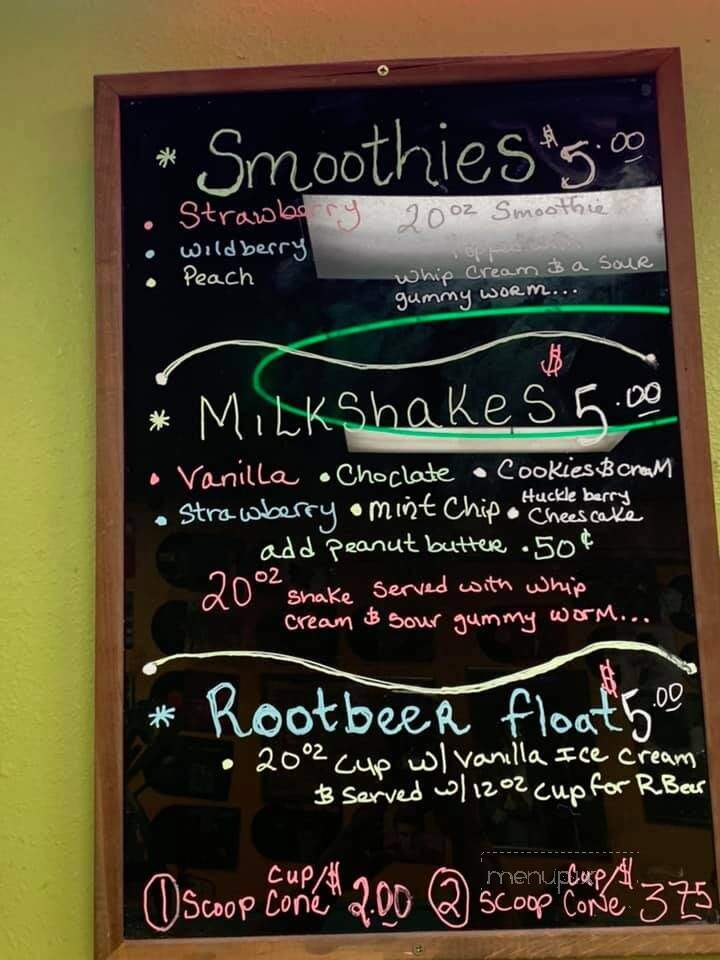 * Smoothies $5.00
• Strawberry 20oz Smoothie
• wildberry Topped with
• Peach whip Cream & a Sour
gummy worm...
* MilkShakes $5.00
• Vanilla • Choclate • Cookies & creaM
• Strawberry • mint Chip • Huckle berry Cheescake
add Peanut butter .50¢
20oz Shake Served with whip
Cream & Sour gummy worM...
* Rootbeer float $5.00
• 20oz Cup w/ Vanilla Ice Cream
& Served w/ 12oz Cup for R Beer
1 Scoop Cup/Cone $2.00 2 Scoop Cup/Cone $3.75
menupix